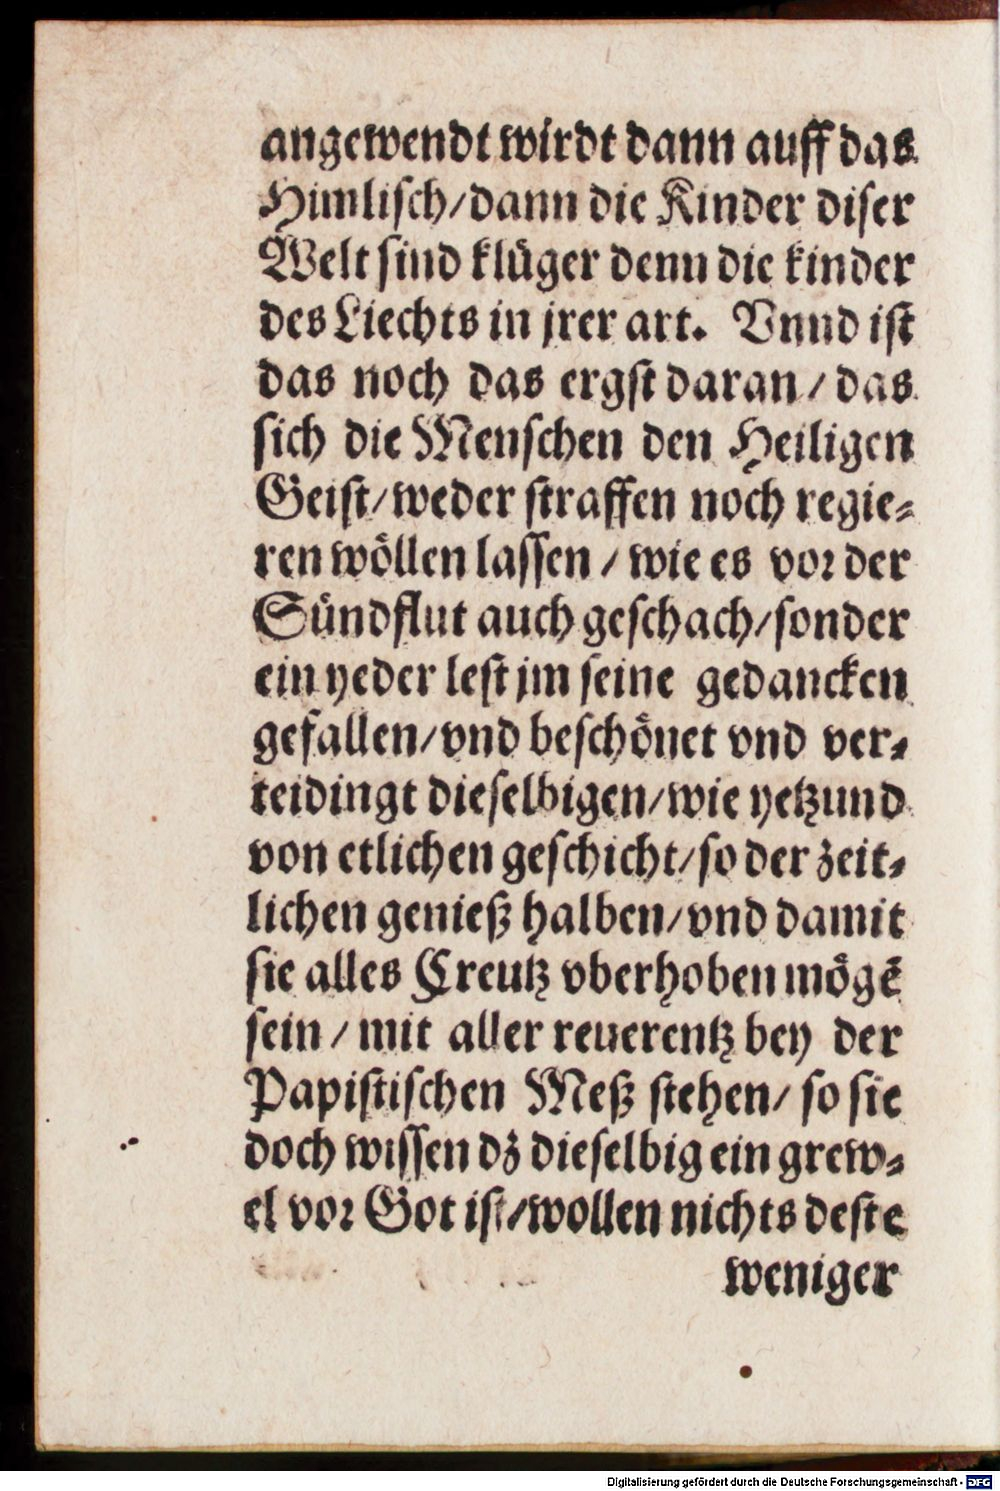 angewendt wirdt dann auff das
Himlisch/dann die Kinder diser
Welt sind klüger denn die kinder
des Liechts in jrer art. Vnnd ist
das noch das ergst daran/ das
sich die Menschen den Heiligen
Geist/weder straffen noch regie⸗
ren wöllen lassen / wie es vor der
Sündflut auch geschach/sonder
ein yeder lest jm seine gedancken
gefallen/vnd beschönet vnd ver⸗
teidingt dieselbigen/wie yetzund
von etlichen geschicht/so der zeit⸗
lichen genieß halben/vnd damit
sie alles Creutz vberhoben mögẽ
sein/ mit aller reuerentz bey der
Papistischen Meß stehen/ so sie
doch wissen dz dieselbig ein grew⸗
el vor Got ist/wollen nichts deste
weniger
Digitalisierung gefördert durch die Deutsche Forschungsgemeinschaft - DFG